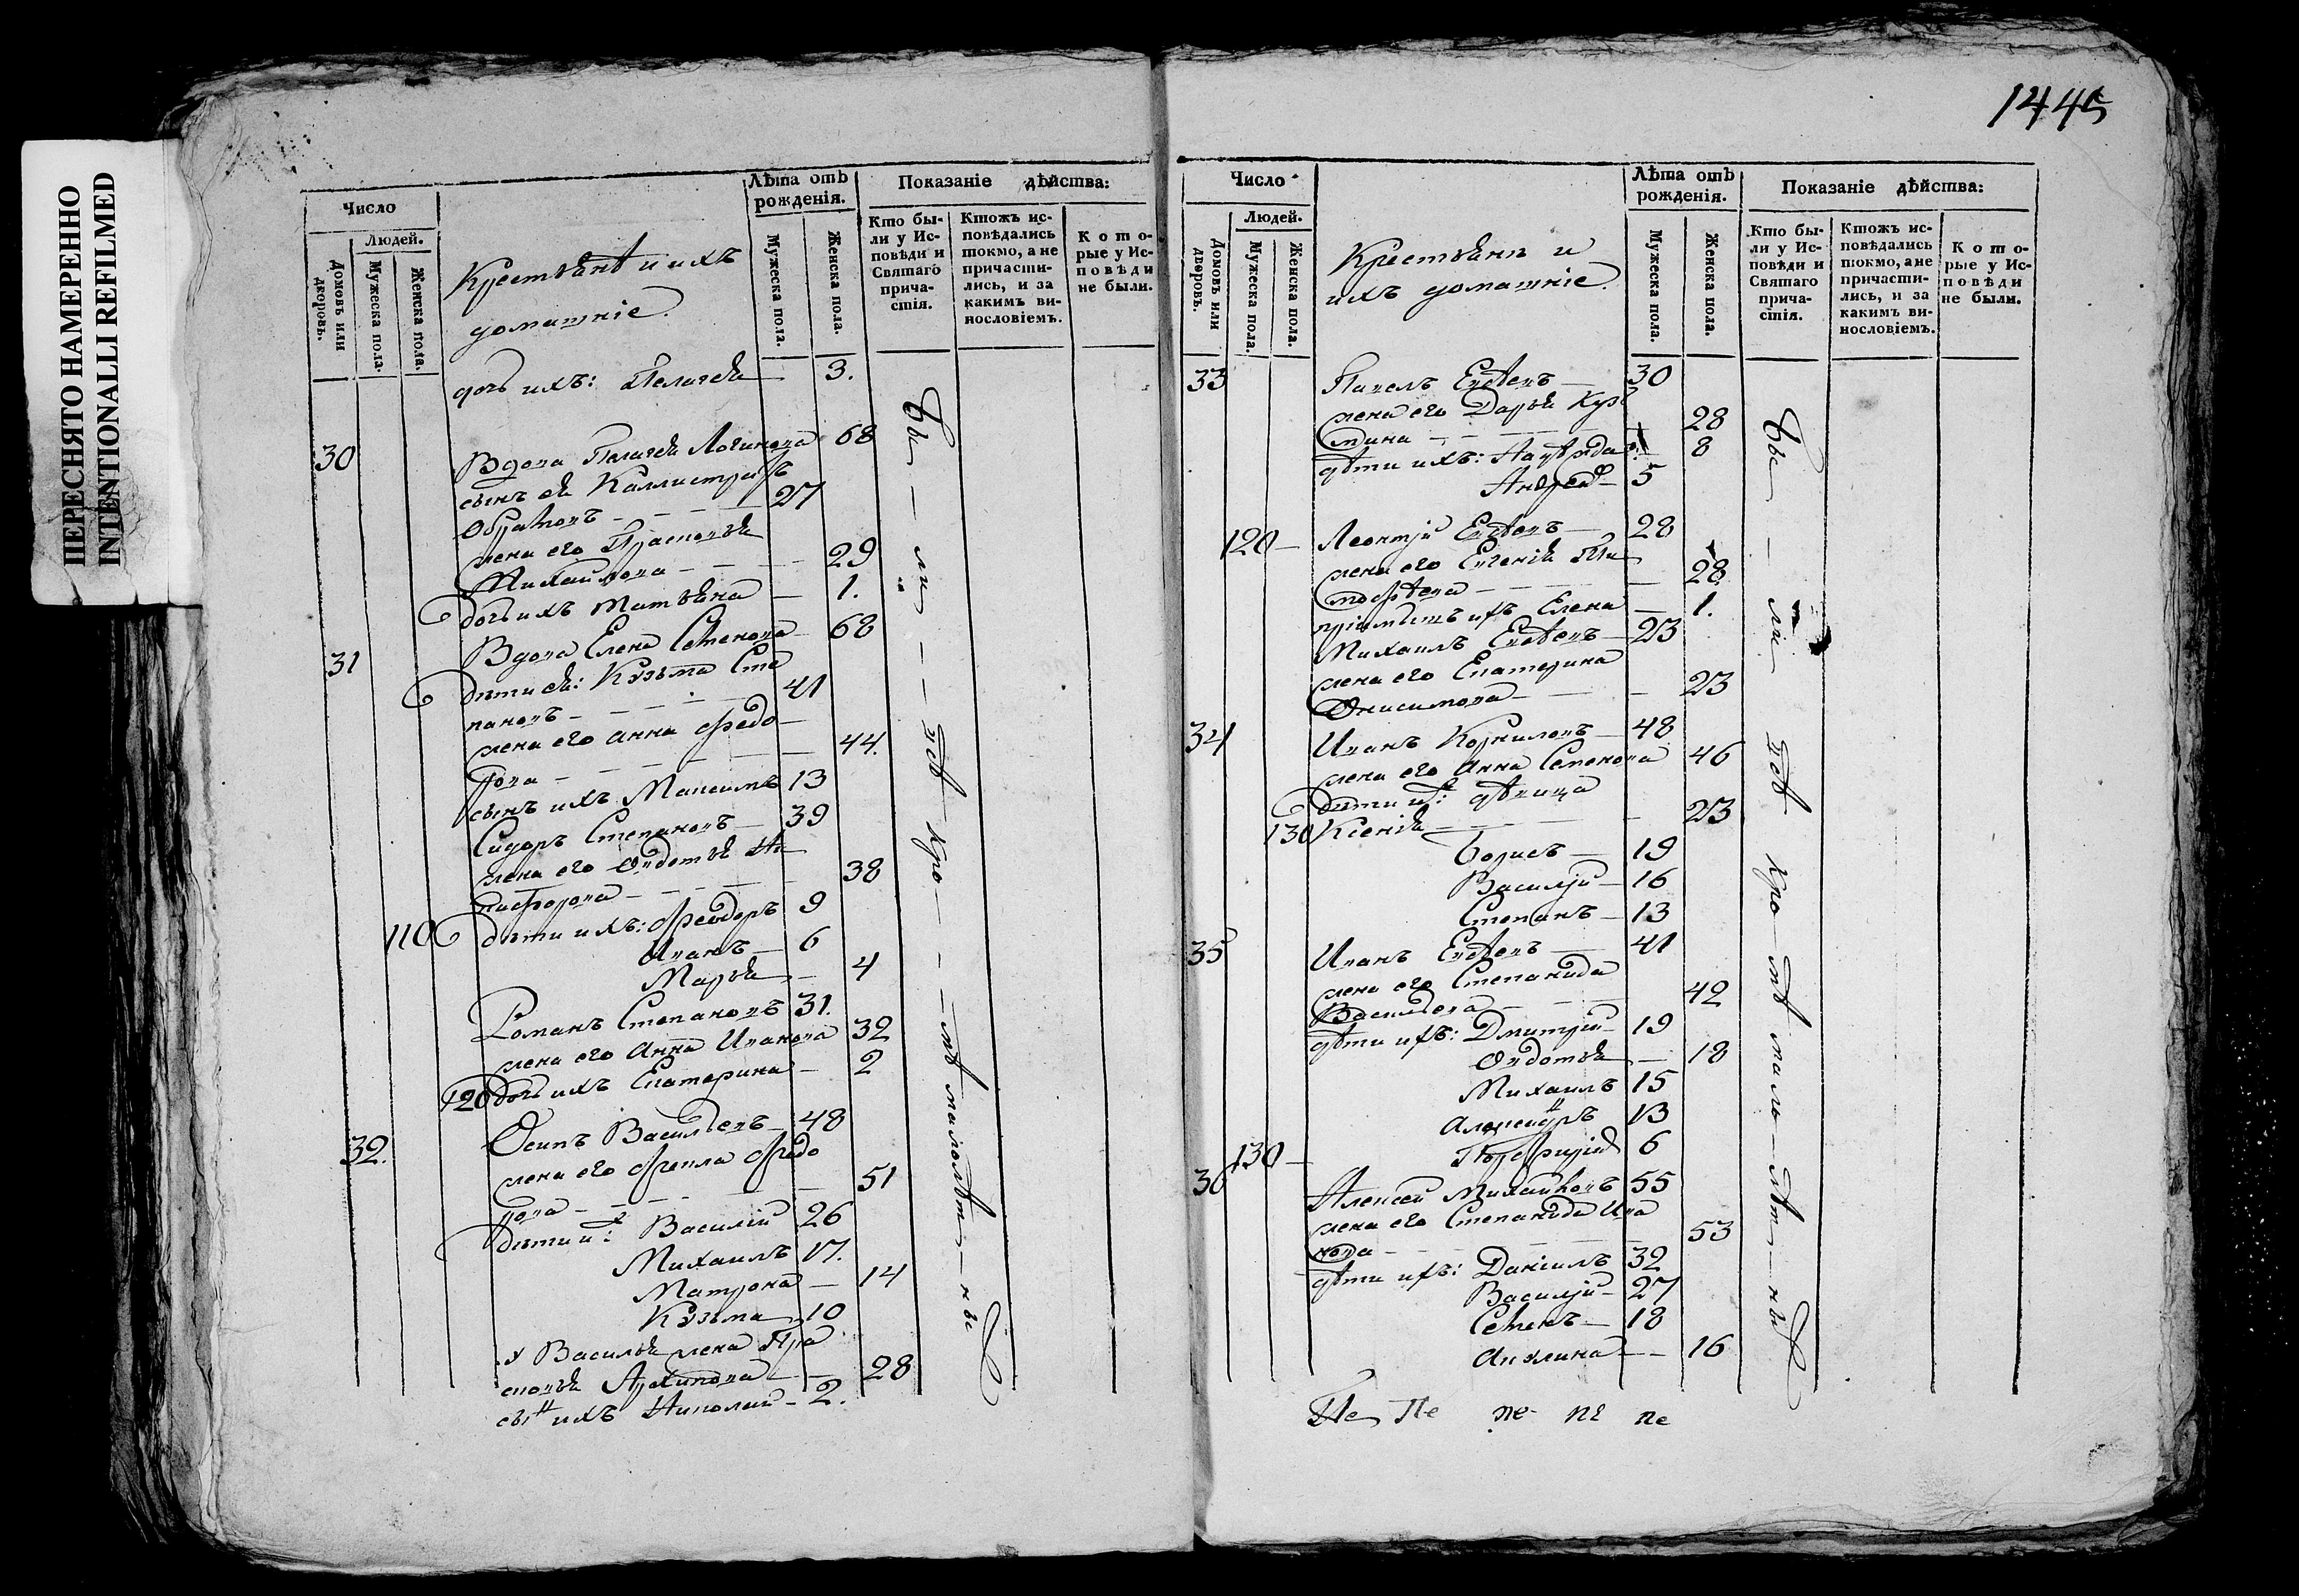 ПЕРЕСНЯТО НАМЕРЕННО
INTENTIONALLI REFILMED
Число
Людей.
Домовъ или дворовъ.
Мужеска пола.
Женска пола.
Крестьянѣ и ихъ
домашніе.
Лѣта отъ рожденія.
Мужеска пола.
Женска пола.
Показаніе дѣйства:
Кто бы-
ли у Ис-
повѣди и
Святаго
прича-
стія.
Ктожъ ис-
повѣдались
токмо, а не
причасти-
лись, и за
какимъ ви-
нословіемъ.
Кото-
рые у Ис-
повѣди
не были.
дочь ихъ: Пелагея 3.
30 Вдова Пелагея Логинова 68
сынъ ея Каллистратъ
27
жена его Прасковья
Михайлова 29
дочь ихъ Матвѣна 1.
31 Вдова Елена Семенова 68
дѣти ея: Козьма Сте
пановъ 41
жена его Анна Ѳедо
рова 44.
сынъ ихъ Максимъ 13
Сидоръ Степановъ 39
жена его Овдотья Ни
кифорова 38
110 дѣти ихъ: Ѳеодоръ 9
Иванъ 6
Марья 4
Романъ Степановъ 31.
жена его Анна Иванова 32
120 дочь ихъ Екатерина 2
32. Осипъ Васильевъ 48
жена его Ѳекла Ѳедо
рова 51
дѣти их: Василій 26
Михаилъ 17.
Матрона 14
Козьма 10
У Василья жена Пра
сковья Архипова 28
сынъ ихъ Николай 2.
Бы — ли — — — всѣ кро — — — мѣ малолѣт — ны
1445
Число
Людей.
Домовъ или дворовъ.
Мужеска пола.
Женска пола.
Крестьянѣ и
ихъ домашніе.
Лѣта отъ рожденія.
Мужеска пола.
Женска пола.
Показаніе дѣйства:
Кто бы-
ли у Ис-
повѣди и
Святаго
прича-
стія.
Ктожъ ис-
повѣдались
токмо, а не
причасти-
лись, и за
какимъ ви-
нословіемъ.
Кото-
рые у Ис-
повѣди
не были.
33 Павелъ Евсѣевъ 30
жена его Дарья Кузь
мина 28
дѣти ихъ: Надежда 8
Андрей 5
120 Леонтій Евсѣевъ 28
жена его Евгенія Ти
моѳѣева 28
Елена 1.
Михаилъ Евсѣевъ 23
жена его Екатерина
Онисимова 23
34 Иванъ Корниловъ 48
жена его Анна Семенова 46
дѣти их: дѣвица
130 Ксенія 23
Борисъ 19
Василій 16
Степанъ 13
35 Иванъ Евсѣевъ 41
жена его Степанида
Васильева 42
дѣти ихъ: Дмитрій 19
Овдотья 18
Михаилъ 15
Александръ 13
130 Порфирій 6
36 Алексей Михайловъ 55
жена его Степанида Ива
нова 53
дѣти ихъ: Даніилъ 32
Василій 27
Семенъ 18
Акилина 16
Бы — ли всѣ кро — мѣ мало — лѣт — ны
Пе Пе пе пе пе